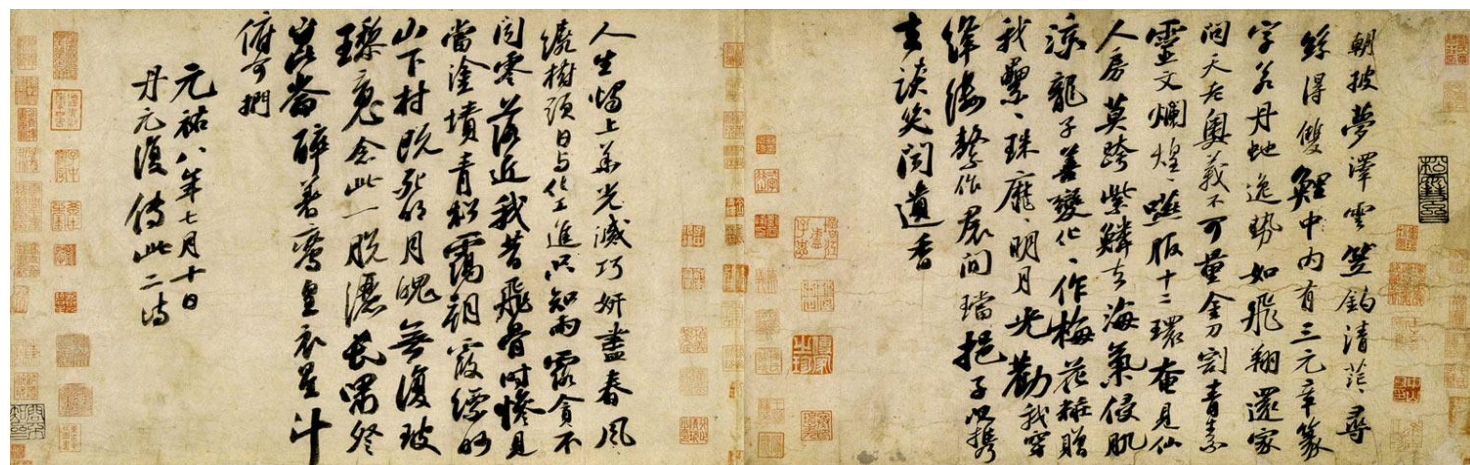 朝披夢澤雲笠釣清茫〻尋
絲得雙鯉中內有三元章篆
字若丹蛇逸勢如飛翔還家
問天老奧義不可量金刀割青素
靈文爛煌〻嚥服十二環奄見仙
人房莫跨紫鱗去海氣侵肌
涼龍子善變化〻作梅花粧贈
我纍〻珠靡〻明月光勸我穿
絳縷繫作裙間璫挹子以攜
去談笑聞遺香
人生燭上華光滅巧妍盡春風
繞樹頭日與化工進只知雨露貪不
聞零落近我昔飛骨時慘見
當塗墳青松靄朝霞縹緲
山下村既死明月魄無復玻
瓈魂念此一脫灑長嘯登
崑崙醉著鸞皇衣星斗
俯可捫
元祐八年七月十日
丹元復傳此二詩